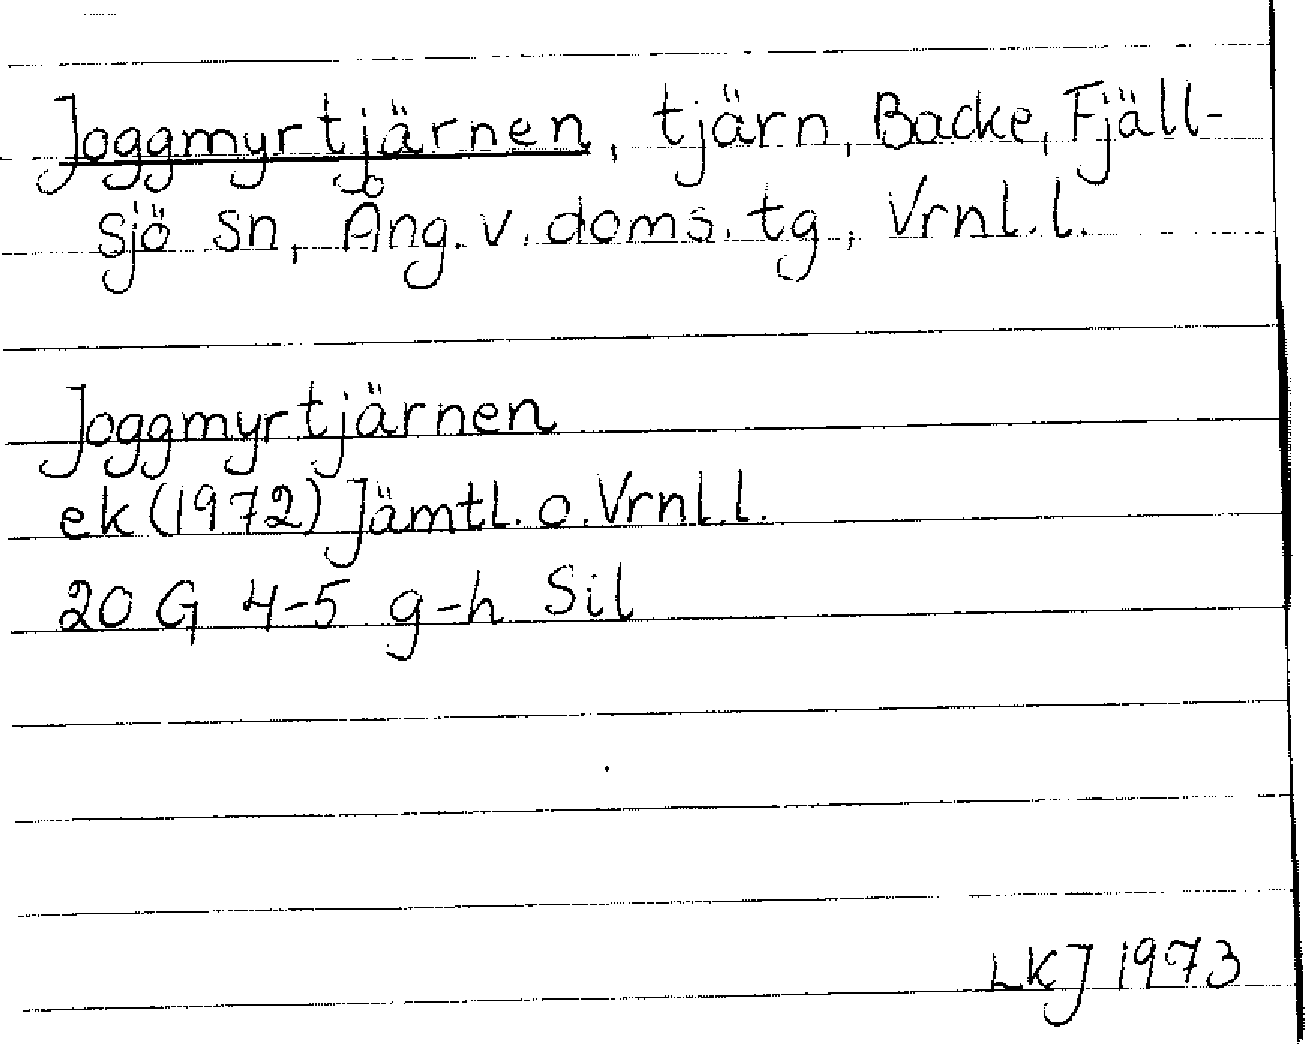 Joggmyrtjärnen, tjärn, Backe, Fjäll-
sjö sn, Ång. v. doms. tg, Vrnl. l.
Joggmyrtjärnen
ek (1972) Jämtl. o. Vrnl. l.
20 G 4-5 g-h Sil
LKJ 1973